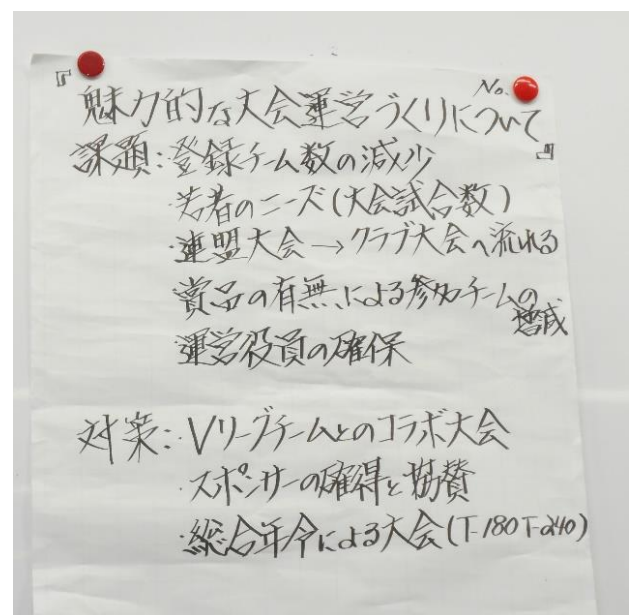 No.
『魅力的な大会運営づくりについて』
課題:登録チーム数の減少
・若者のニーズ(大会試合数)
・連盟大会→クラブ大会へ流れる
賞品の有無による参加チームの増減
運営役員の確保
対策:・Vリーグチームとのコラボ大会
・スポンサーの確得と協賛
・総合年令による大会(T-180 T-240)